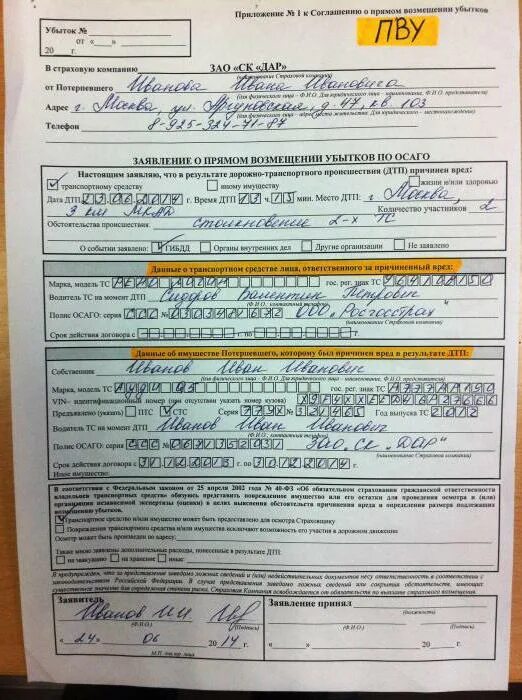 Приложение № 1 к Соглашению о прямом возмещении убытков
ПВУ
Убыток №
от «___» ______
20___ г.
В страховую компанию ЗАО «СК «ДАР»
(наименование Страховой компании)
от Потерпевшего Иванова Ивана Ивановича
(для физического лица - Ф.И.О. Для юридического лица - наименование, Ф.И.О. представителя)
Адрес г. Москва, ул. д. 47, кв. 103
(для физического лица - адрес места жительства. Для юридического - местонахождение)
Телефон 8-925-324-71-87
ЗАЯВЛЕНИЕ О ПРЯМОМ ВОЗМЕЩЕНИИ УБЫТКОВ ПО ОСАГО
Настоящим заявляю, что в результате дорожно-транспортного происшествия (ДТП) причинен вред:
транспортному средству иному имуществу жизни и/или здоровью
Дата ДТП 23.06.2014 г. Время ДТП 23 ч. 15 мин. Место ДТП: г. Москва,
3 км МКАД Количество участников 2
Обстоятельства происшествия: столкновение 2-х ТС
О событии заявлено: ГИБДД Органы внутренних дел Другие организации Не заявлено
Данные о транспортном средстве лица, ответственного за причиненный вред:
Марка, модель ТС гос. рег. знак ТС
Водитель ТС на момент ДТП Сидоров Валентин Петрович
(Ф.И.О., контактный телефон)
Полис ОСАГО: серия ССС № ООО „Росгосстрах"
(наименование Страховой компании)
Срок действия договора с по г.
Данные об имуществе Потерпевшего, которому был причинен вред в результате ДТП:
Собственник Иванов Иван Иванович
(для физического лица - Ф.И.О. Для юридического лица - наименование, Ф.И.О. представителя)
Марка, модель ТС Ауди Q5 гос. рег. знак ТС А777АА150
VIN – идентификационный номер (при отсутствии указать номер кузова)
Предъявлено (указать) ПТС СТС Серия № 321465 Год выпуска ТС 2012
Водитель ТС на момент ДТП Иванов Иван Иванович
(Ф.И.О., контактный телефон)
Полис ОСАГО: серия ССС № 0621352931 ЗАО „СК „ДАР"
(наименование Страховой компании)
Срок действия договора с 31.12.2013 г. по 30.12.2014 г.
Иное имущество:
В соответствии с Федеральным законом от 25 апреля 2002 года № 40-ФЗ «Об обязательном страховании гражданской ответственности
владельцев транспортных средств» обязуюсь представить поврежденное имущество или его остатки для проведения осмотра и (или)
организации независимой экспертизы (оценки) в целях выяснения обстоятельств причинения вреда и определения размера подлежащих
возмещению убытков.
Транспортное средство и/или имущество может быть предоставлено для осмотра Страховщику
Повреждения транспортного средства и/или имущества исключают возможность его участия в дорожном движении
Осмотр может быть произведен по адресу:
Также мною заявлены дополнительные расходы, понесенные в результате ДТП:
на эвакуацию на хранение иные:
Я предупрежден, что за представление заведомо ложных сведений и (или) недействительных документов несу ответственность в соответствии с
законодательством Российской Федерации. В случае представления заведомо ложных сведений или сокрытия обстоятельств, имеющих
существенное значение для определения степени риска, Страховая Компания освобождается от обязательств по выплате страхового возмещения.
Заявитель Заявление принял
Иванов И.И.
(должность)
(Ф.И.О.) (Подпись) (Ф.И.О.) (Подпись)
« 24 » 06 2014 г. «___» ______ 20___ г.
М.П. для юр. лица